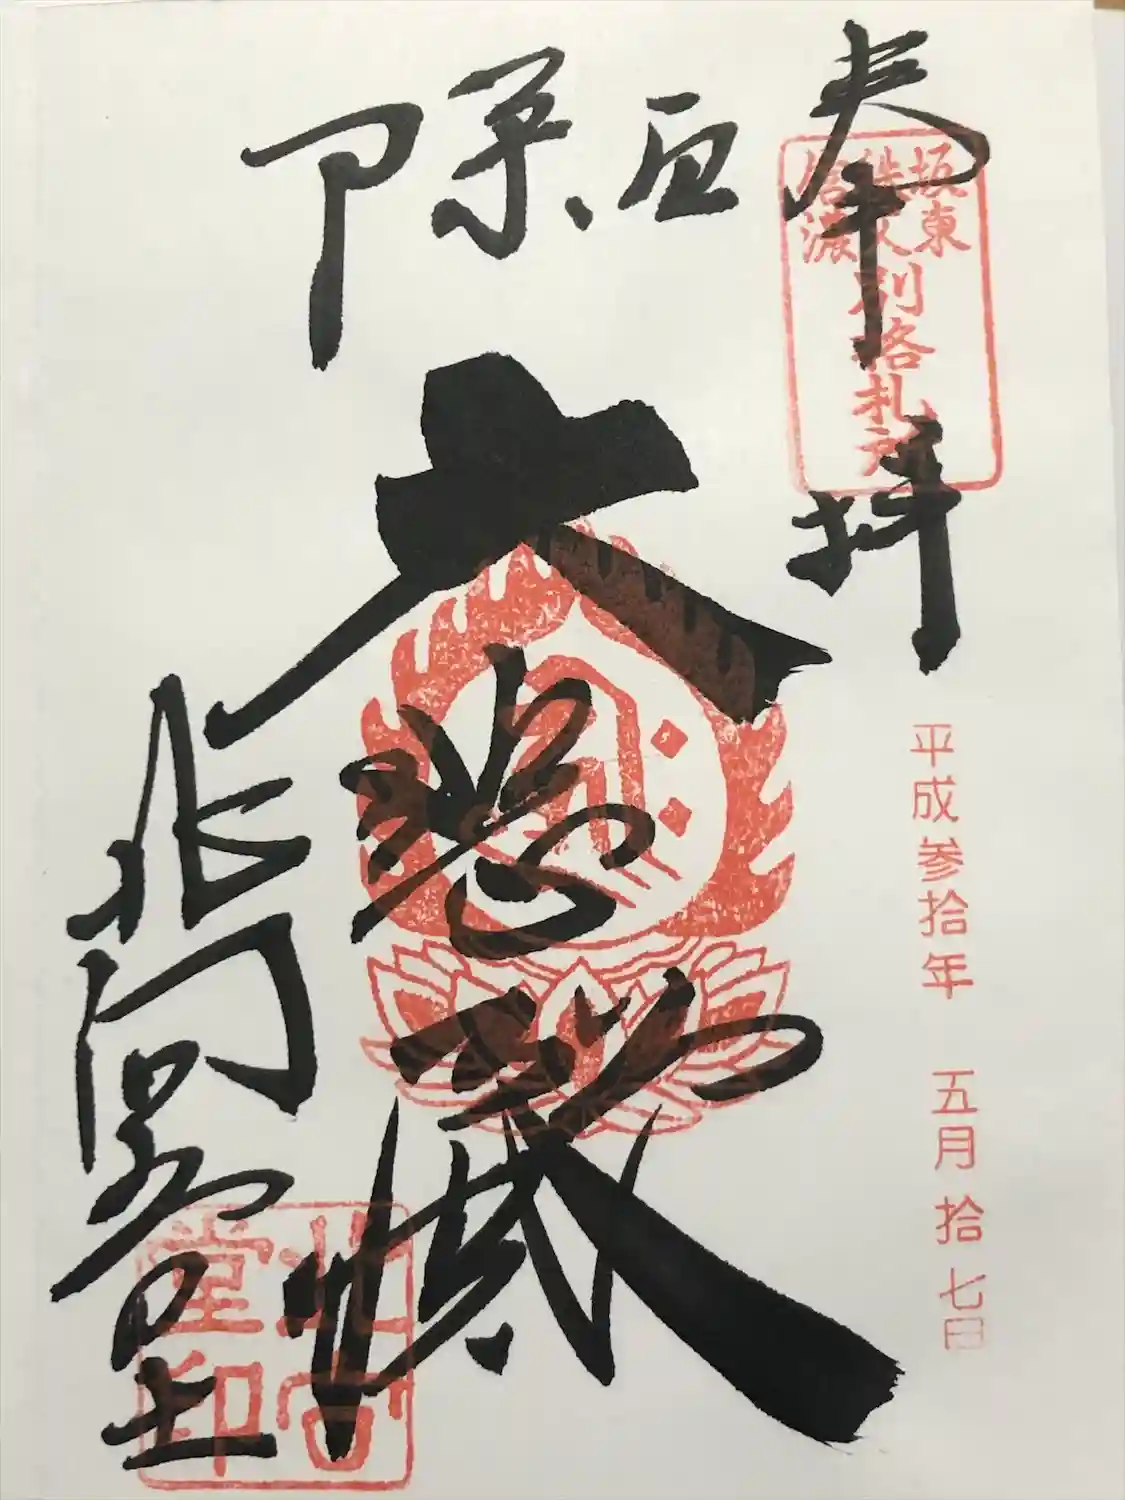 奉拝
坂東
秩父
信濃
別格札所
平成参拾年 五月拾七日
厄除
大悲
北向
北向堂印